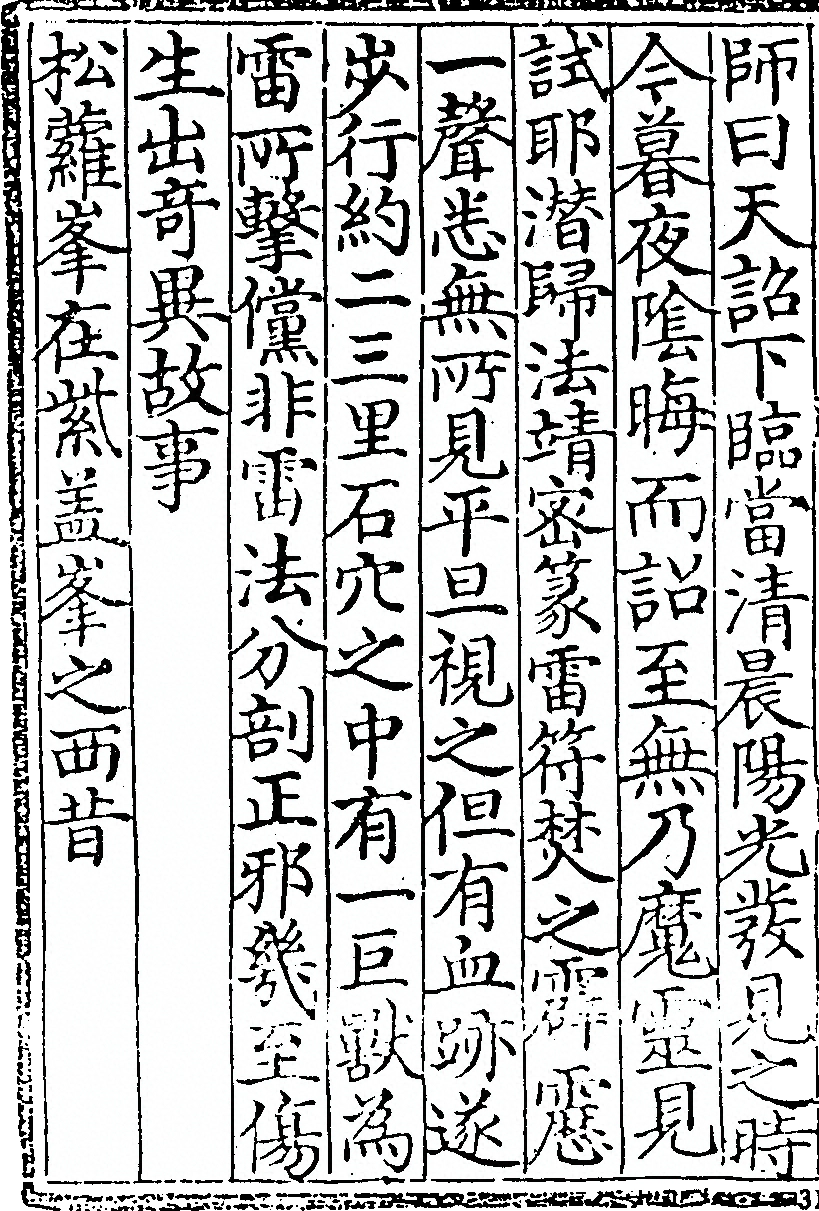 師曰天詔下臨當清晨陽光發見之時
今暮夜陰晦而詔至無乃魔靈見
試耶潛歸法靖密篆雷符焚之霹靂
一聲悉無所見平旦視之但有血跡遂
步行約二三里石穴之中有一巨獸為
雷所擊儻非雷法分剖正邪幾至傷
生出奇異故事
松蘿峯在紫盖峯之西昔